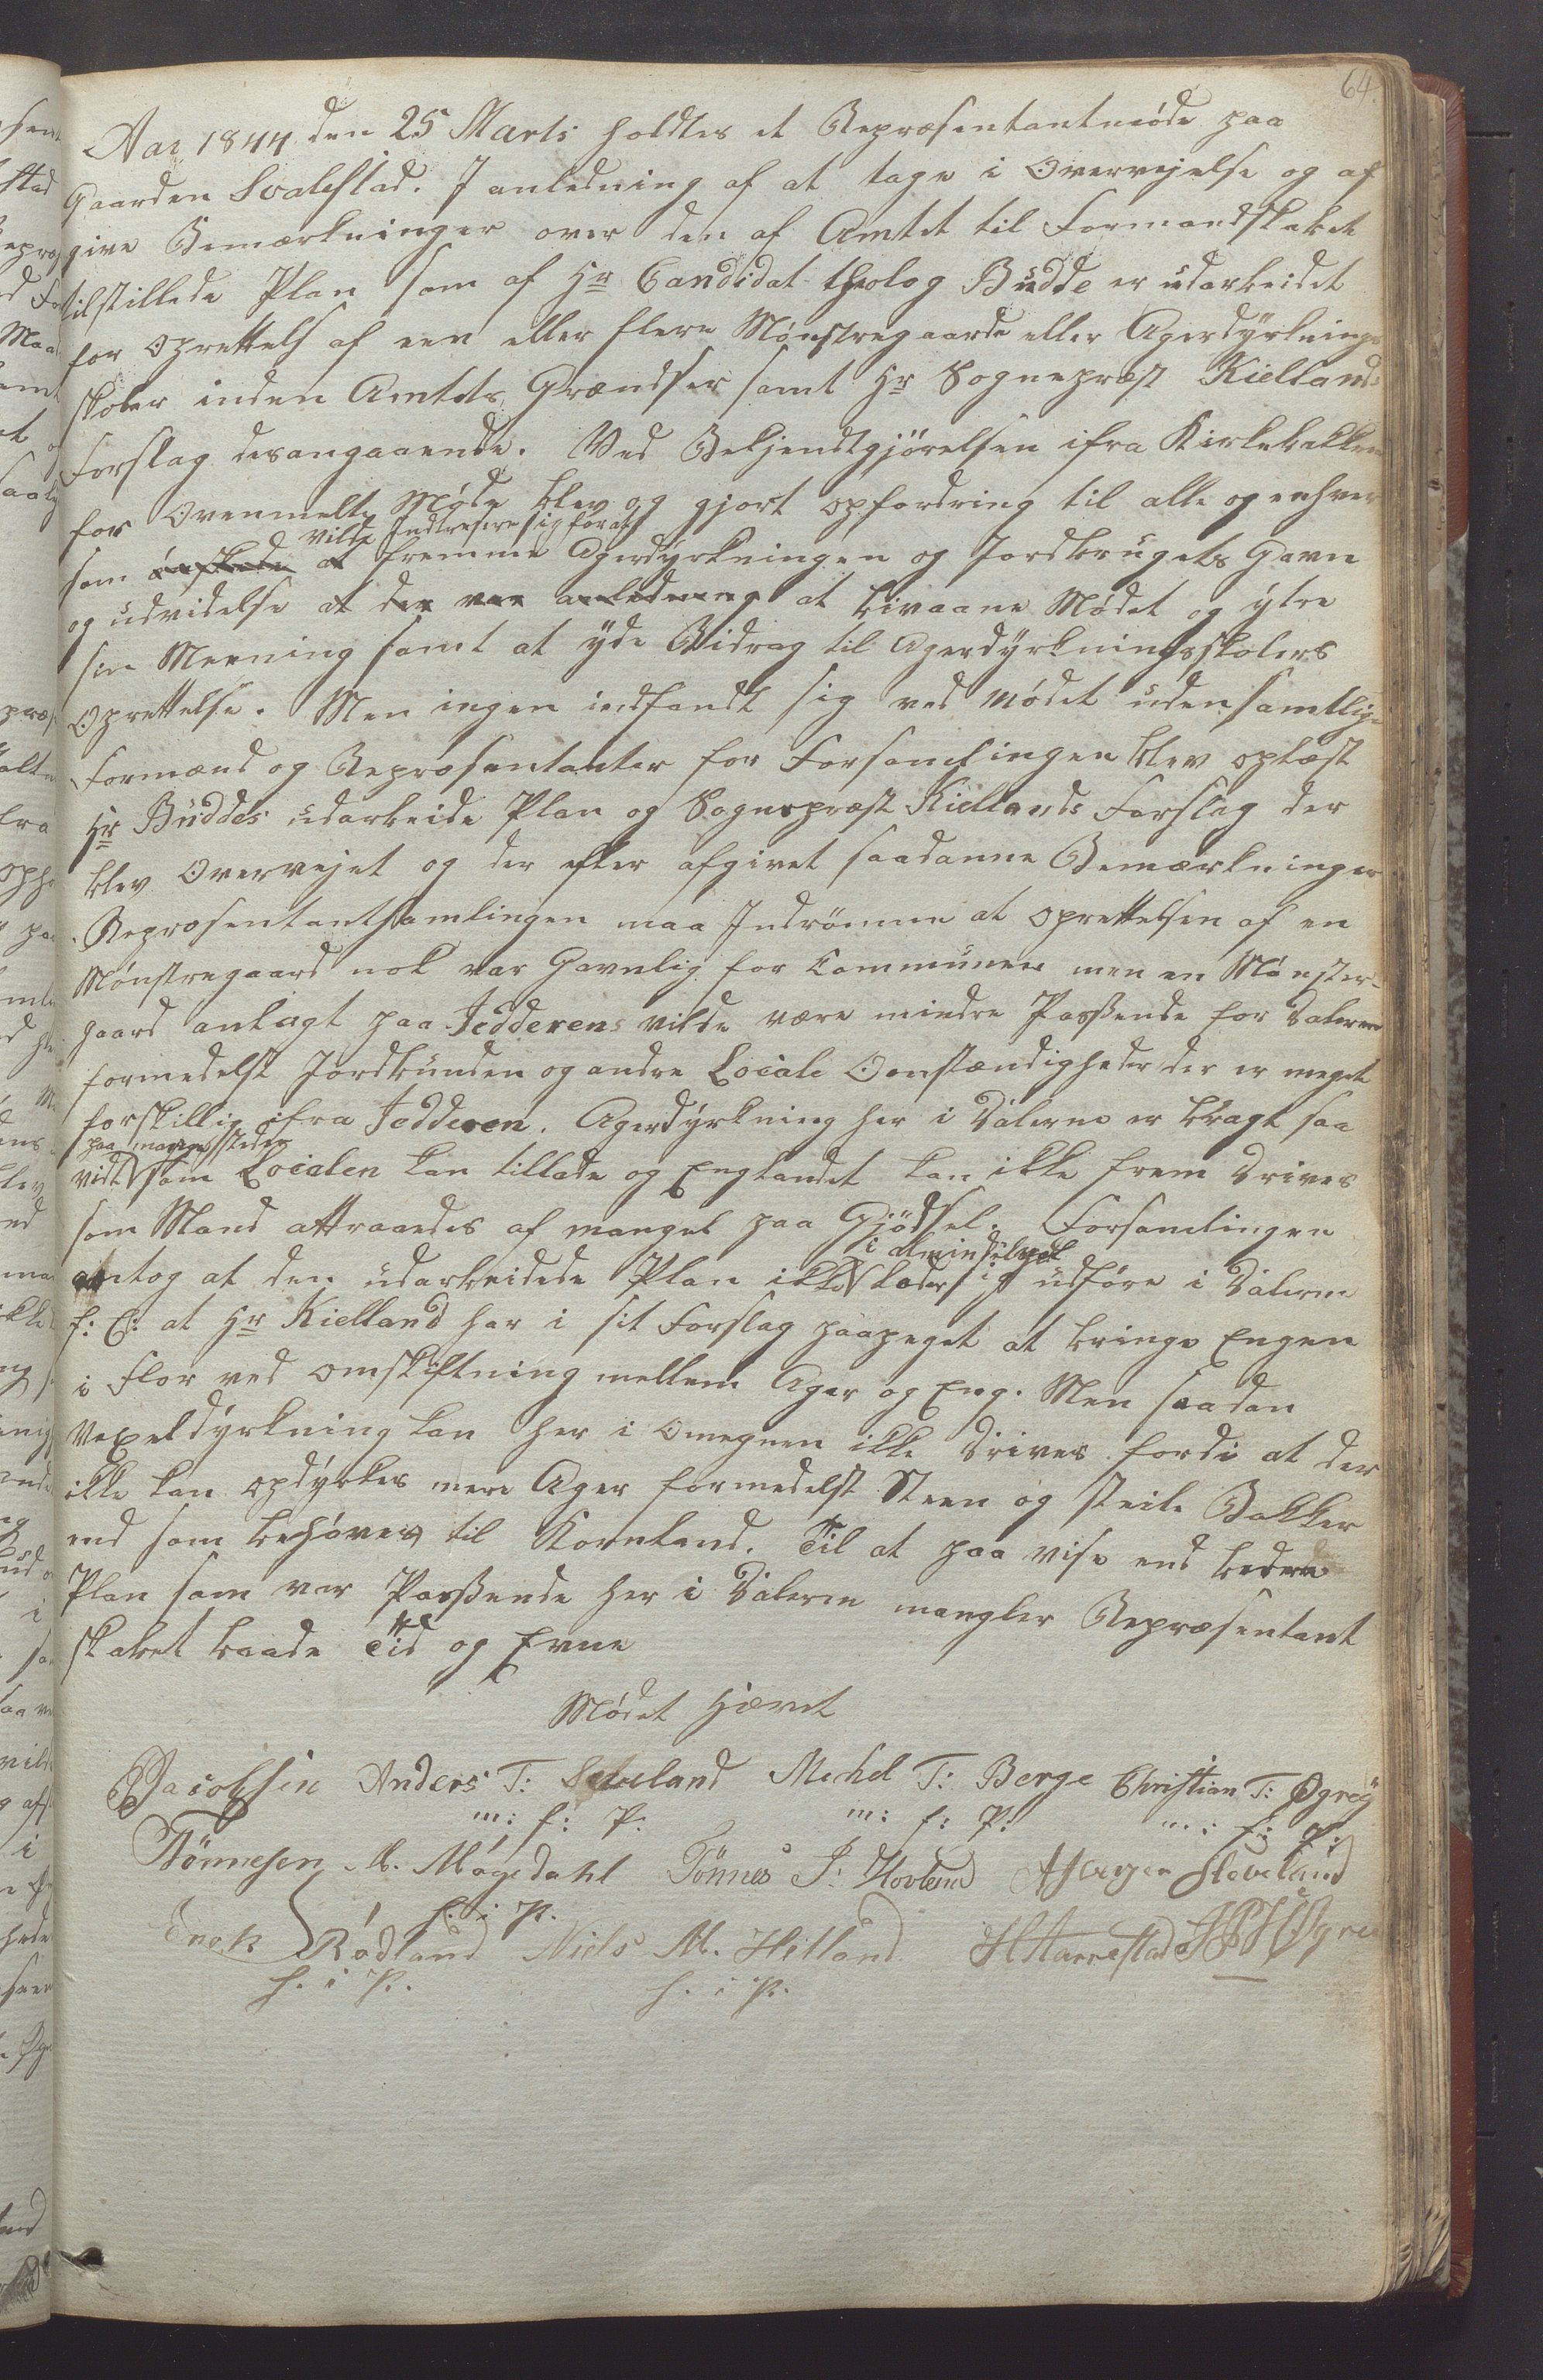 64.
Aar 1844 den 25 Marts holdtes et Repræsentantmøde paa
Gaarden Svalestad. I anledning af at tage i Overvejelse og af
give Bemærkninger over den af Amtet til Formandskabet
tilstillede Plan som af Hr Candidat theolog Budde er udarbeidet
for Oprettels af een eller flere Mønstregaarde eller Agerdyrknings
skoler inden Amtets Grændser samt Hr Sognepræst Kiellands
Forslag desangaaende. Ved Bekjendtgjørelsen ifra Kirkebakken
for Ovenmelte Møde blev og gjort opfordring til alle og enhver
vilde Indtresere sig for at
som ønskede at fremme Agerdyrkningen og Jordbrugets Gavn
og udvidelse at der var anledning at bivaane Mødet og ytre
sin Meening samt at yde Bidrag til Agerdyrkningsskolers
Oprettelse. Men ingen indfandt sig ved mødet uden samtlige
Formænd og Repræsentanter for Forsamlingen blev oplæst
Hr Buddes udarbeide Plan og Sognepræst Kiellands Forslag der
blev Overvejet og der efter afgivet saadanne Bemærkninger
Repræsentantsamlingen maa Indrømme at oprettelsen af en
Mønstregaard nok var Gavnlig for Communen men en Mønster-
gaard anlagt paa Jedderens vilde være mindre Passende for Dalerne
formedelst Jordbunden og andre Locale Omstændigheder der er meget
forskillig ifra Jedderen. Agerdyrkning her i Dalerne er bragt saa
paa mange steder
vidt som Localen kan tillade og Englandet kan ikke frem Drives
som Mand attraaedes af mangel paa Gjødsel. Forsamlingen
i almindelighed
antog at den udarbeidede Plan ikke lader sig udføre i Dalerne
f: E: at Hr Kielland har i sit Forslag paapeget at bringe Engen
i Flor ved omskiftning mellem Ager og Eng. Men saadan
Vexeldyrkning kan her i Omegnen ikke Drives fordi at der
ikke kan opdyrkes mere Ager formedelst Steen og steile Bakker
end som behøves til Kornland. Til at paa vise end bedre
Plan som var Passende her i Dalerne mangler Repræsentant
skabet baade Tid og Evne
Mødet Hævet
Jacobsen Anders T: Sleveland Mehel T: Berge Christian T: Øgrey
m: f: P: m: f: P: m: f: P:
Tønnesen M. Møgedahl Tønnes J: Hovland Asbjørn Sleveland
h. i P.
Enok Rødland Niels M. Hetland H Harrestad Øgrei
h. i P. h. i P.